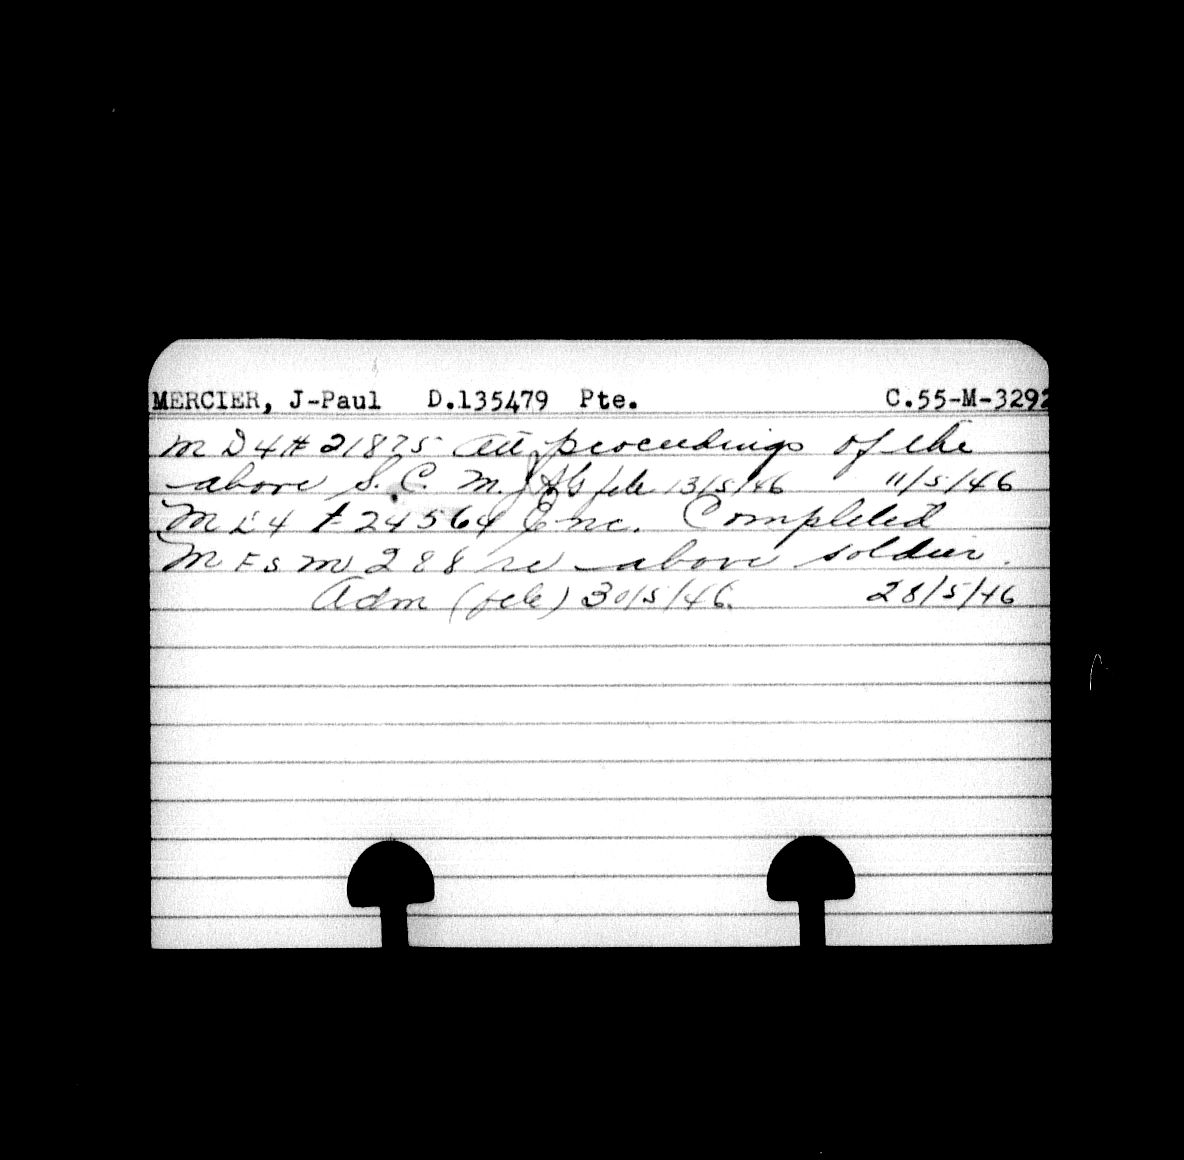 MERCIER, J-Paul D.135479 Pte. C.55-M-3292
M D 4 # 21875 Att proceedings of the
above S. C. M. file 13/5/46 11/5/46
M D 4 F 24564 Enc. Completed
M F S M 288 re above soldier.
Adm (file) 30/5/46. 28/5/46